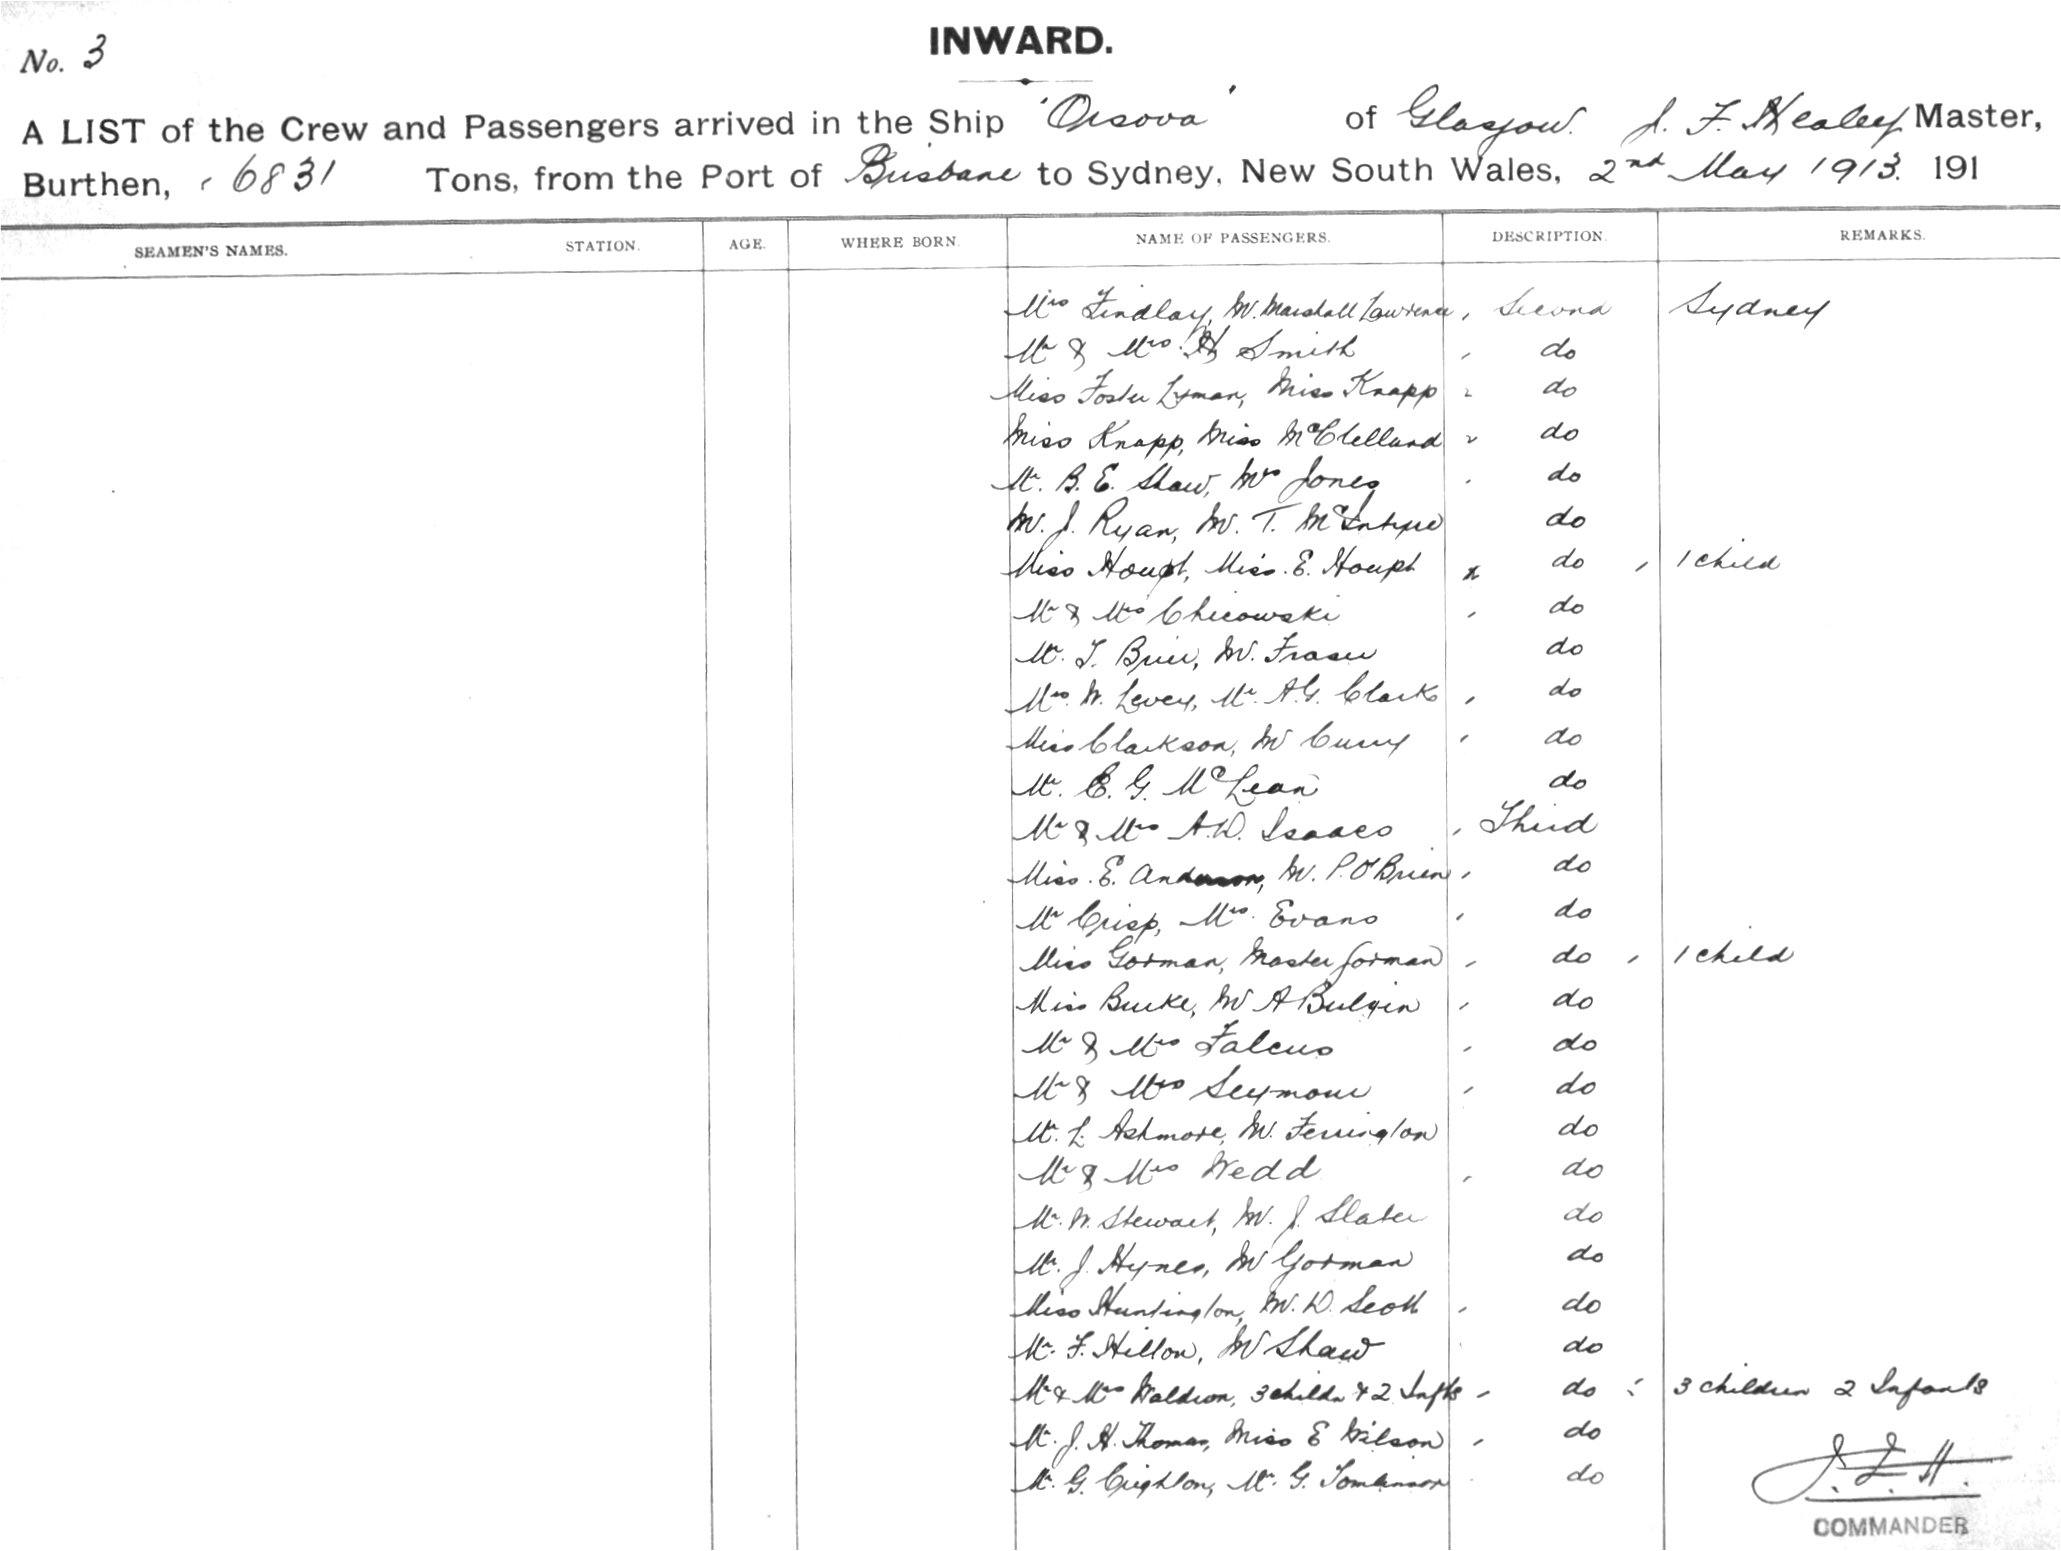 No. 3
INWARD.
A LIST of the Crew and Passengers arrived in the Ship 'Orsova' of Glasgow. J. F. Healey Master,
Burthen, 6831 Tons, from the Port of Brisbane to Sydney, New South Wales, 2nd May 1913. 191
SEAMEN'S NAMES. STATION. AGE. WHERE BORN. NAME OF PASSENGERS. DESCRIPTION. REMARKS.
Mrs Findlay, Mr. Marshall Lawrence, Second Sydney
Mr & Mrs H Smith do
Miss Foster Lyman, Miss Knapp do
Miss Knapp, Miss McClelland do
Mr. B. E. Shaw, Mrs Jones do
Mr. J. Ryan, Mr. T. McIntyre do
Miss Houpt, Miss. E. Houpt do 1 child
Mr & Mrs Chicowski do
Mr. T. Brier, Mr. Fraser do
Mrs. W. Levey, Mr. A.G. Clark do
Miss Clarkson, Mr Curry do
Mr. E. G. McLean do
Mr & Mrs A.W. Isaacs Third
Miss. E. Anderson, Mr. P. O'Brien do
Mr Crisp, Mrs. Evans do
Miss Gorman, Master Gorman do 1 child
Miss Burke, Mr A Bulgin do
Mr & Mrs Falcus do
Mr & Mrs Seymour do
Mr. L. Ashmore, Mr. Ferrington do
Mr & Mrs Wedd do
Mr. W. Stewart, Mr. J. Slater do
Mr. J. Hynes, Mr Gorman do
Miss Huntington, Mr. D. Scott do
Mr. F. Hillon, Mr Shaw do
Mr & Mrs Waldron, 3 childn & 2 Infts do 3 children 2 Infants
Mr. J. H. Thomas, Miss E Wilson do
Mr. G. Crighton, Mr. G. Tomlinson do
J. F. H.
COMMANDER